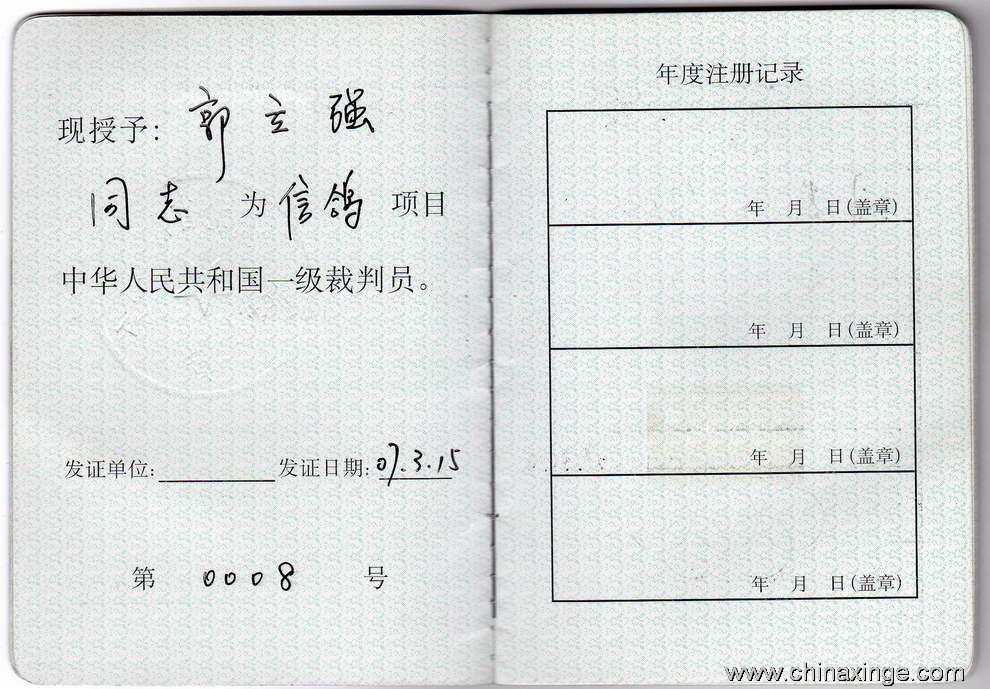 现授予: 郭立强
同志 为 信鸽 项目
中华人民共和国一级裁判员。
发证单位: 发证日期: 07.3.15
第 0008 号
年度注册记录
年 月 日(盖章)
年 月 日(盖章)
年 月 日(盖章)
年 月 日(盖章)
www.chinaxinge.com